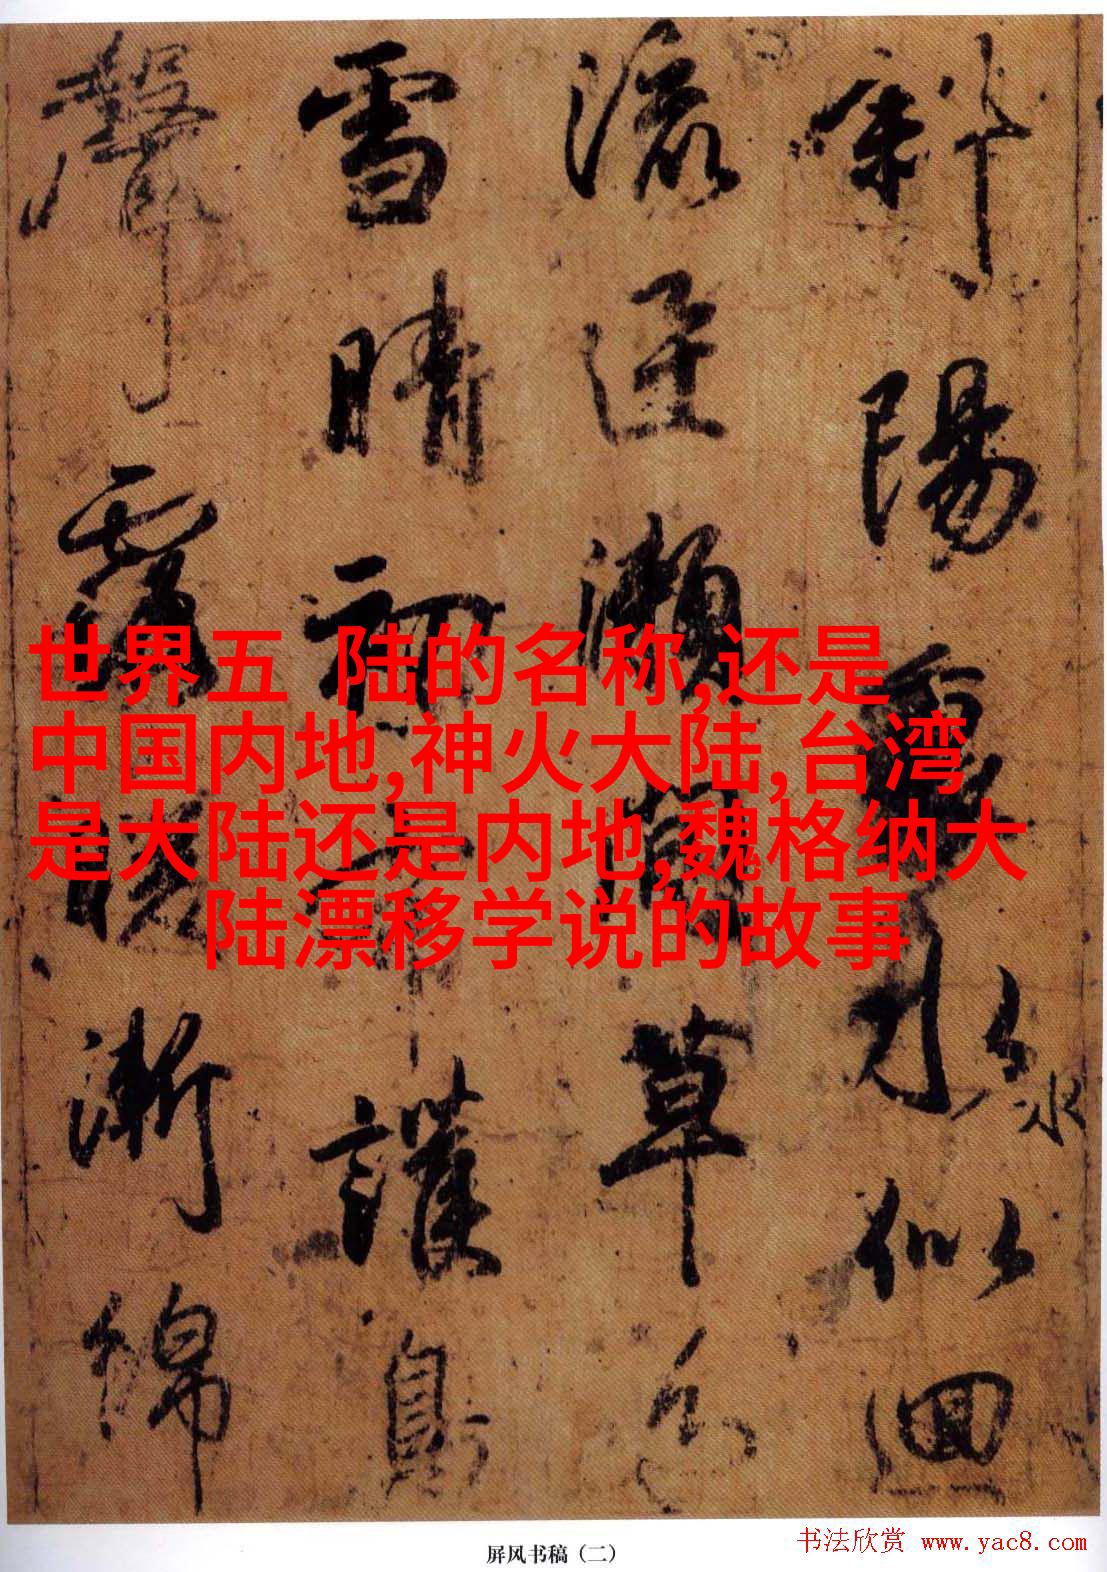 斜陽水似迴
流瀬草色
雪晴初護鳥
聲露漸綿
世界五 陆的名称,还是
中国内地,神火大陆,台湾
是大陆还是内地,魏格纳大
陆漂移学说的故事
屏风书稿（二）
书法欣赏 www.yac8.com